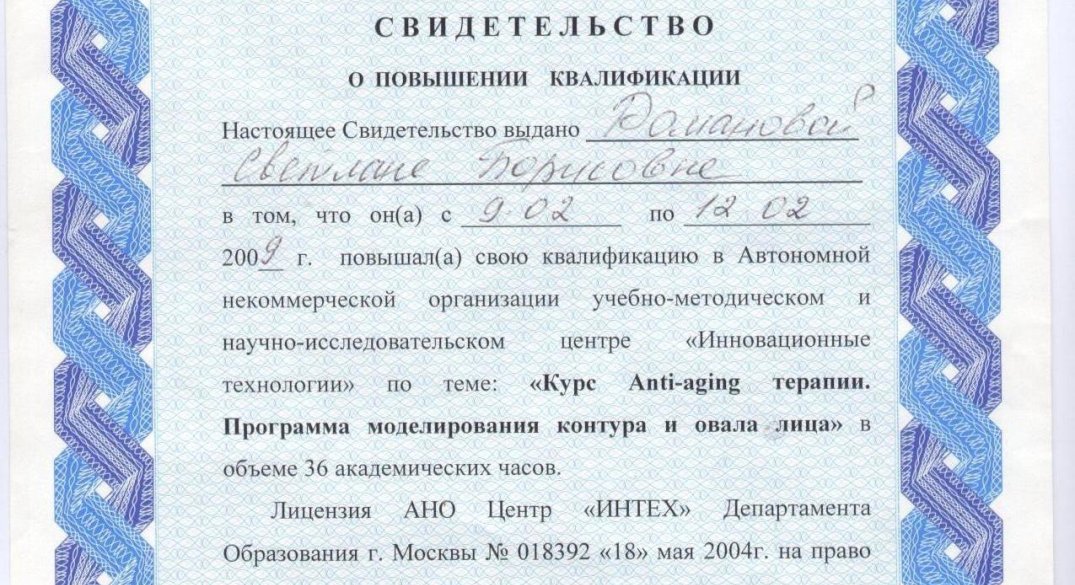 СВИДЕТЕЛЬСТВО
О ПОВЫШЕНИИ КВАЛИФИКАЦИИ
Настоящее Свидетельство выдано Романовой
Светлане Борисовне
в том, что он(а) с 9.02 по 12 02
2009 г. повышал(а) свою квалификацию в Автономной
некоммерческой организации учебно-методическом и
научно-исследовательском центре «Инновационные
технологии» по теме: «Курс Anti-aging терапии.
Программа моделирования контура и овала лица» в
объеме 36 академических часов.
Лицензия АНО Центр «ИНТЕХ» Департамента
Образования г. Москвы № 018392 «18» мая 2004г. на право